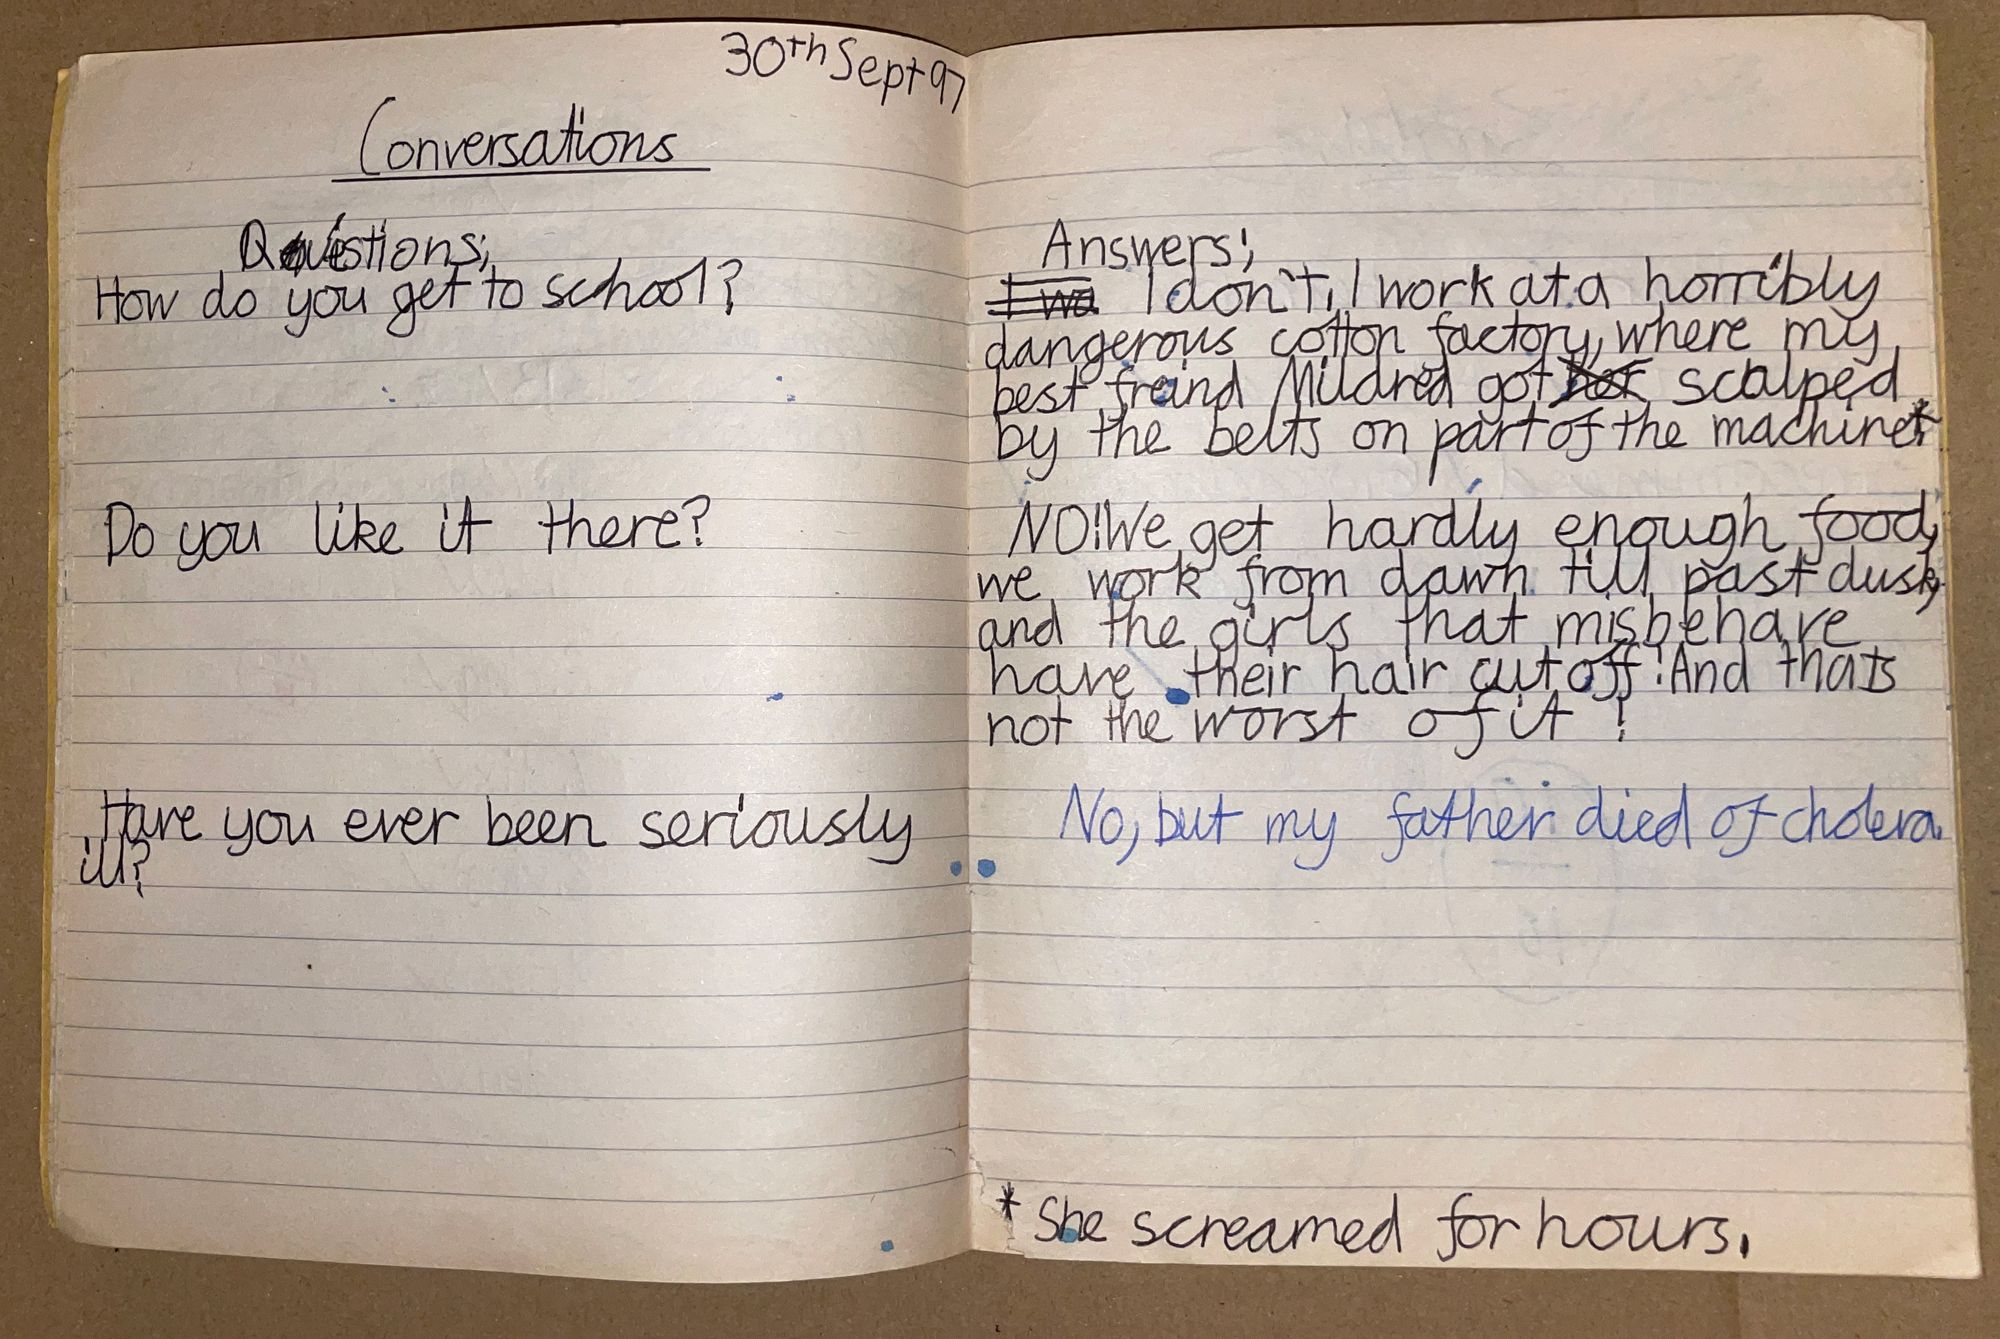 30th Sept 97
Conversations
Questions;
How do you get to school?
Do you like it there?
Have you ever been seriously
ill?
Answers;
I wa I don't, I work at a horribly
dangerous cotton factory, where my
best freind Mildred got her scalped
by the belts on part of the machine.*
NO! We get hardly enough food,
we work from dawn till past dusk,
and the girls that misbehave
have their hair cut off! And thats
not the worst of it !
No, but my father died of cholera.
* She screamed for hours.